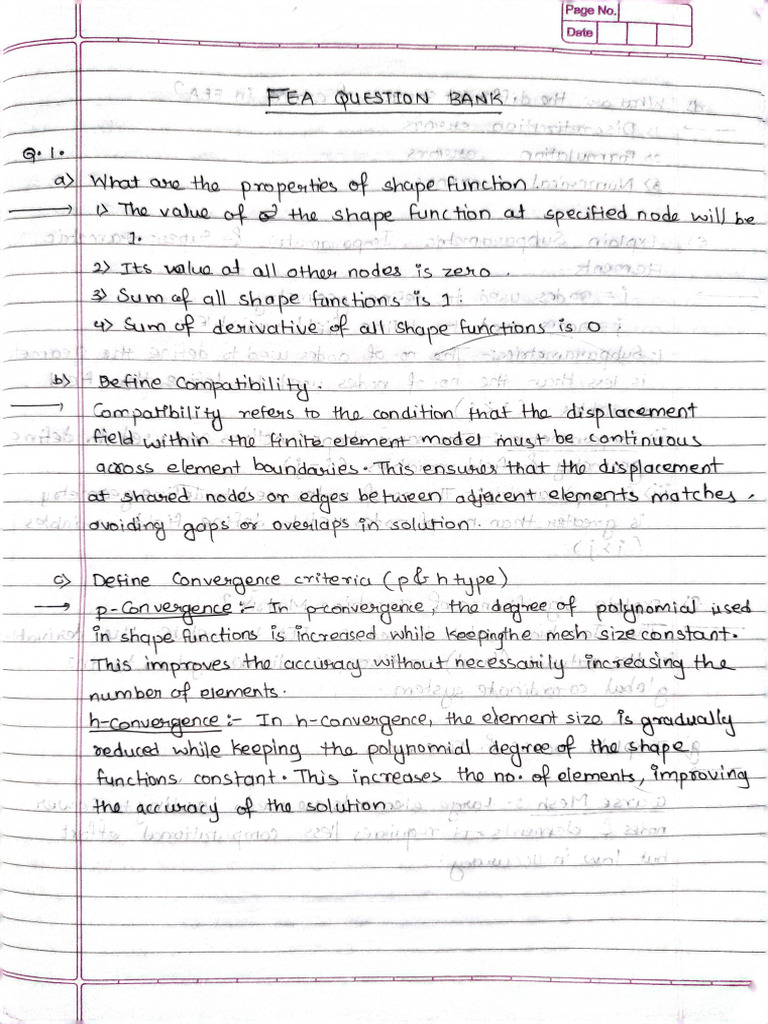 Page No.
Date
FEA QUESTION BANK
Q.1.
a) What are the properties of shape function.
→ 1) The value of the shape function at specified node will be
1.
2) Its value at all other nodes is zero.
3) Sum of all shape functions is 1.
4) Sum of derivative of all shape functions is 0.
b) Define Compatibility.
→ Compatibility refers to the condition that the displacement
field within the finite element model must be continuous
across element boundaries. This ensures that the displacement
at shared nodes or edges between adjacent elements matches,
avoiding gaps or overlaps in solution.
c) Define Convergence criteria (p & h type)
→ p-Convergence :- In p-convergence, the degree of polynomial used
in shape functions is increased while keeping the mesh size constant.
This improves the accuracy without necessarily increasing the
number of elements.
h-convergence :- In h-convergence, the element size is gradually
reduced while keeping the polynomial degree of the shape
functions constant. This increases the no. of elements, improving
the accuracy of the solution